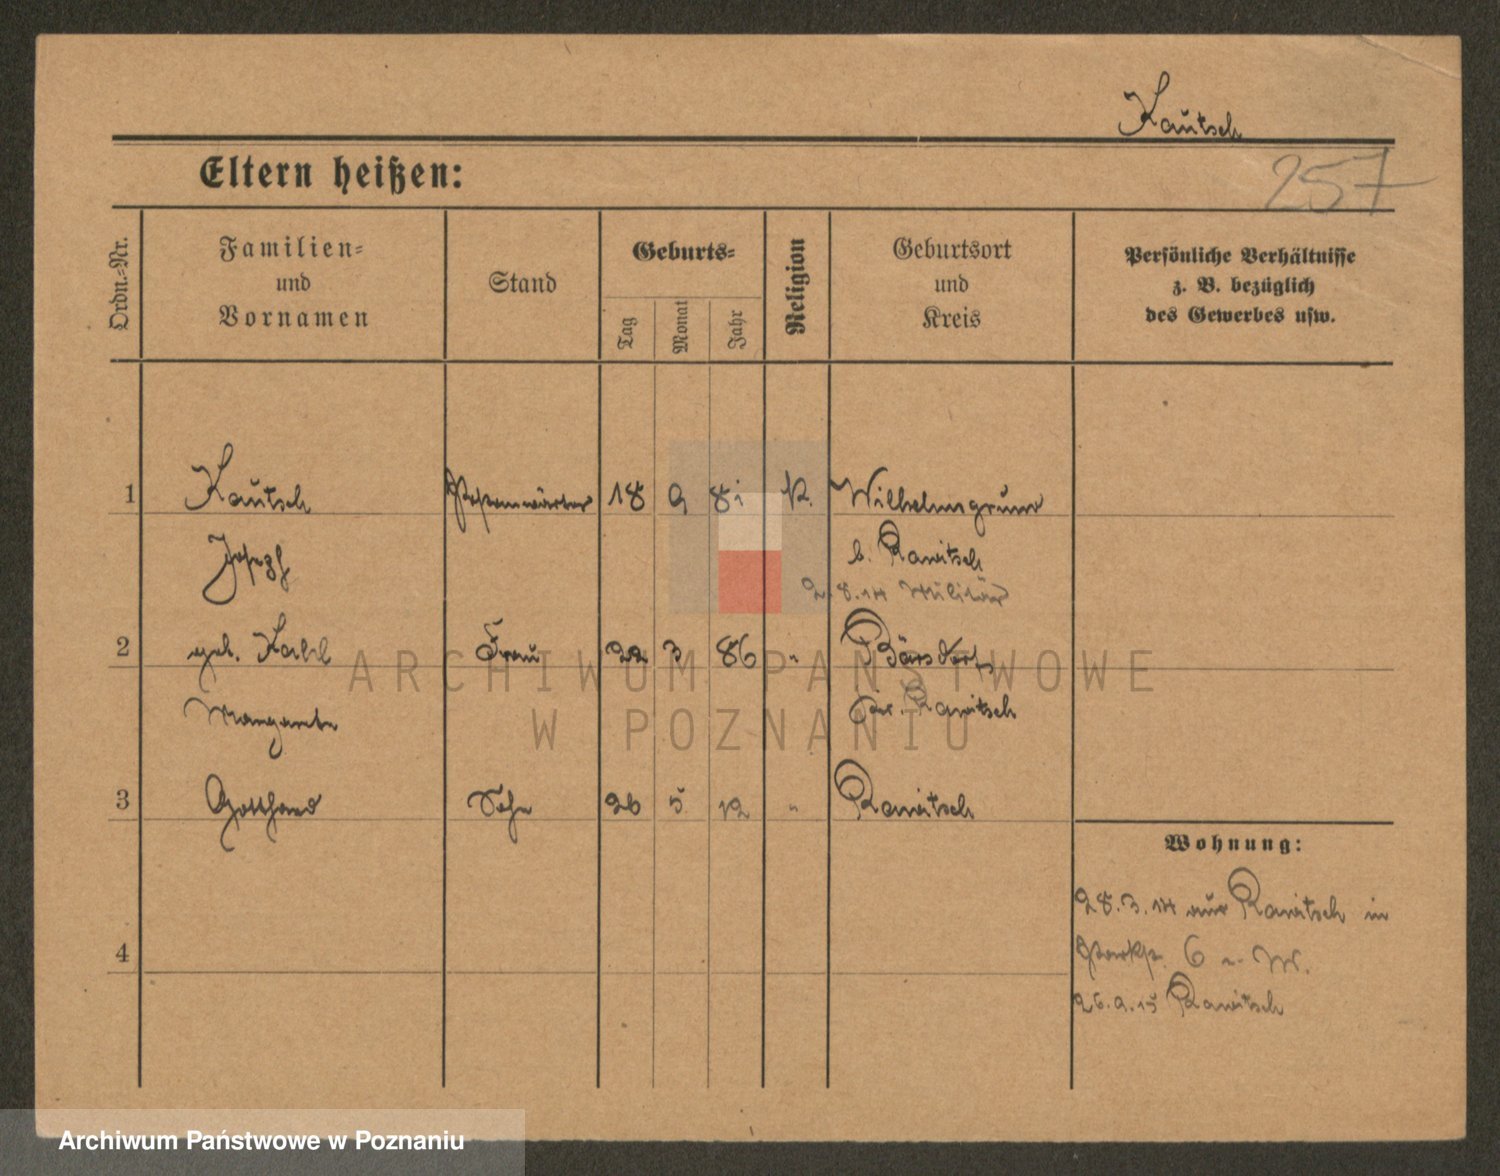 Kautsch
257
Eltern heißen:
Ordn.=Nr.
Familien=
und
Vornamen
Stand
Geburts=
Tag
Monat
Jahr
Religion
Geburtsort
und
Kreis
Persönliche Verhältnisse
z. B. bezüglich
des Gewerbes usw.
1 Kautsch 18 9 81 K. Wilhelmsgrund
Josef b. Rawitsch
2.8.14 Militär
2 geb. Kabel Frau 22 3 86 " Bärsdorf
Margarete Kr. Rawitsch
3 Gotthard Sohn 26 5 12 " Rawitsch
Wohnung:
28.3.14 aus Rawitsch in
6 W.
26.9.15 Rawitsch
4
ARCHIWUM PAŃSTWOWE
W POZNANIU
Archiwum Państwowe w Poznaniu